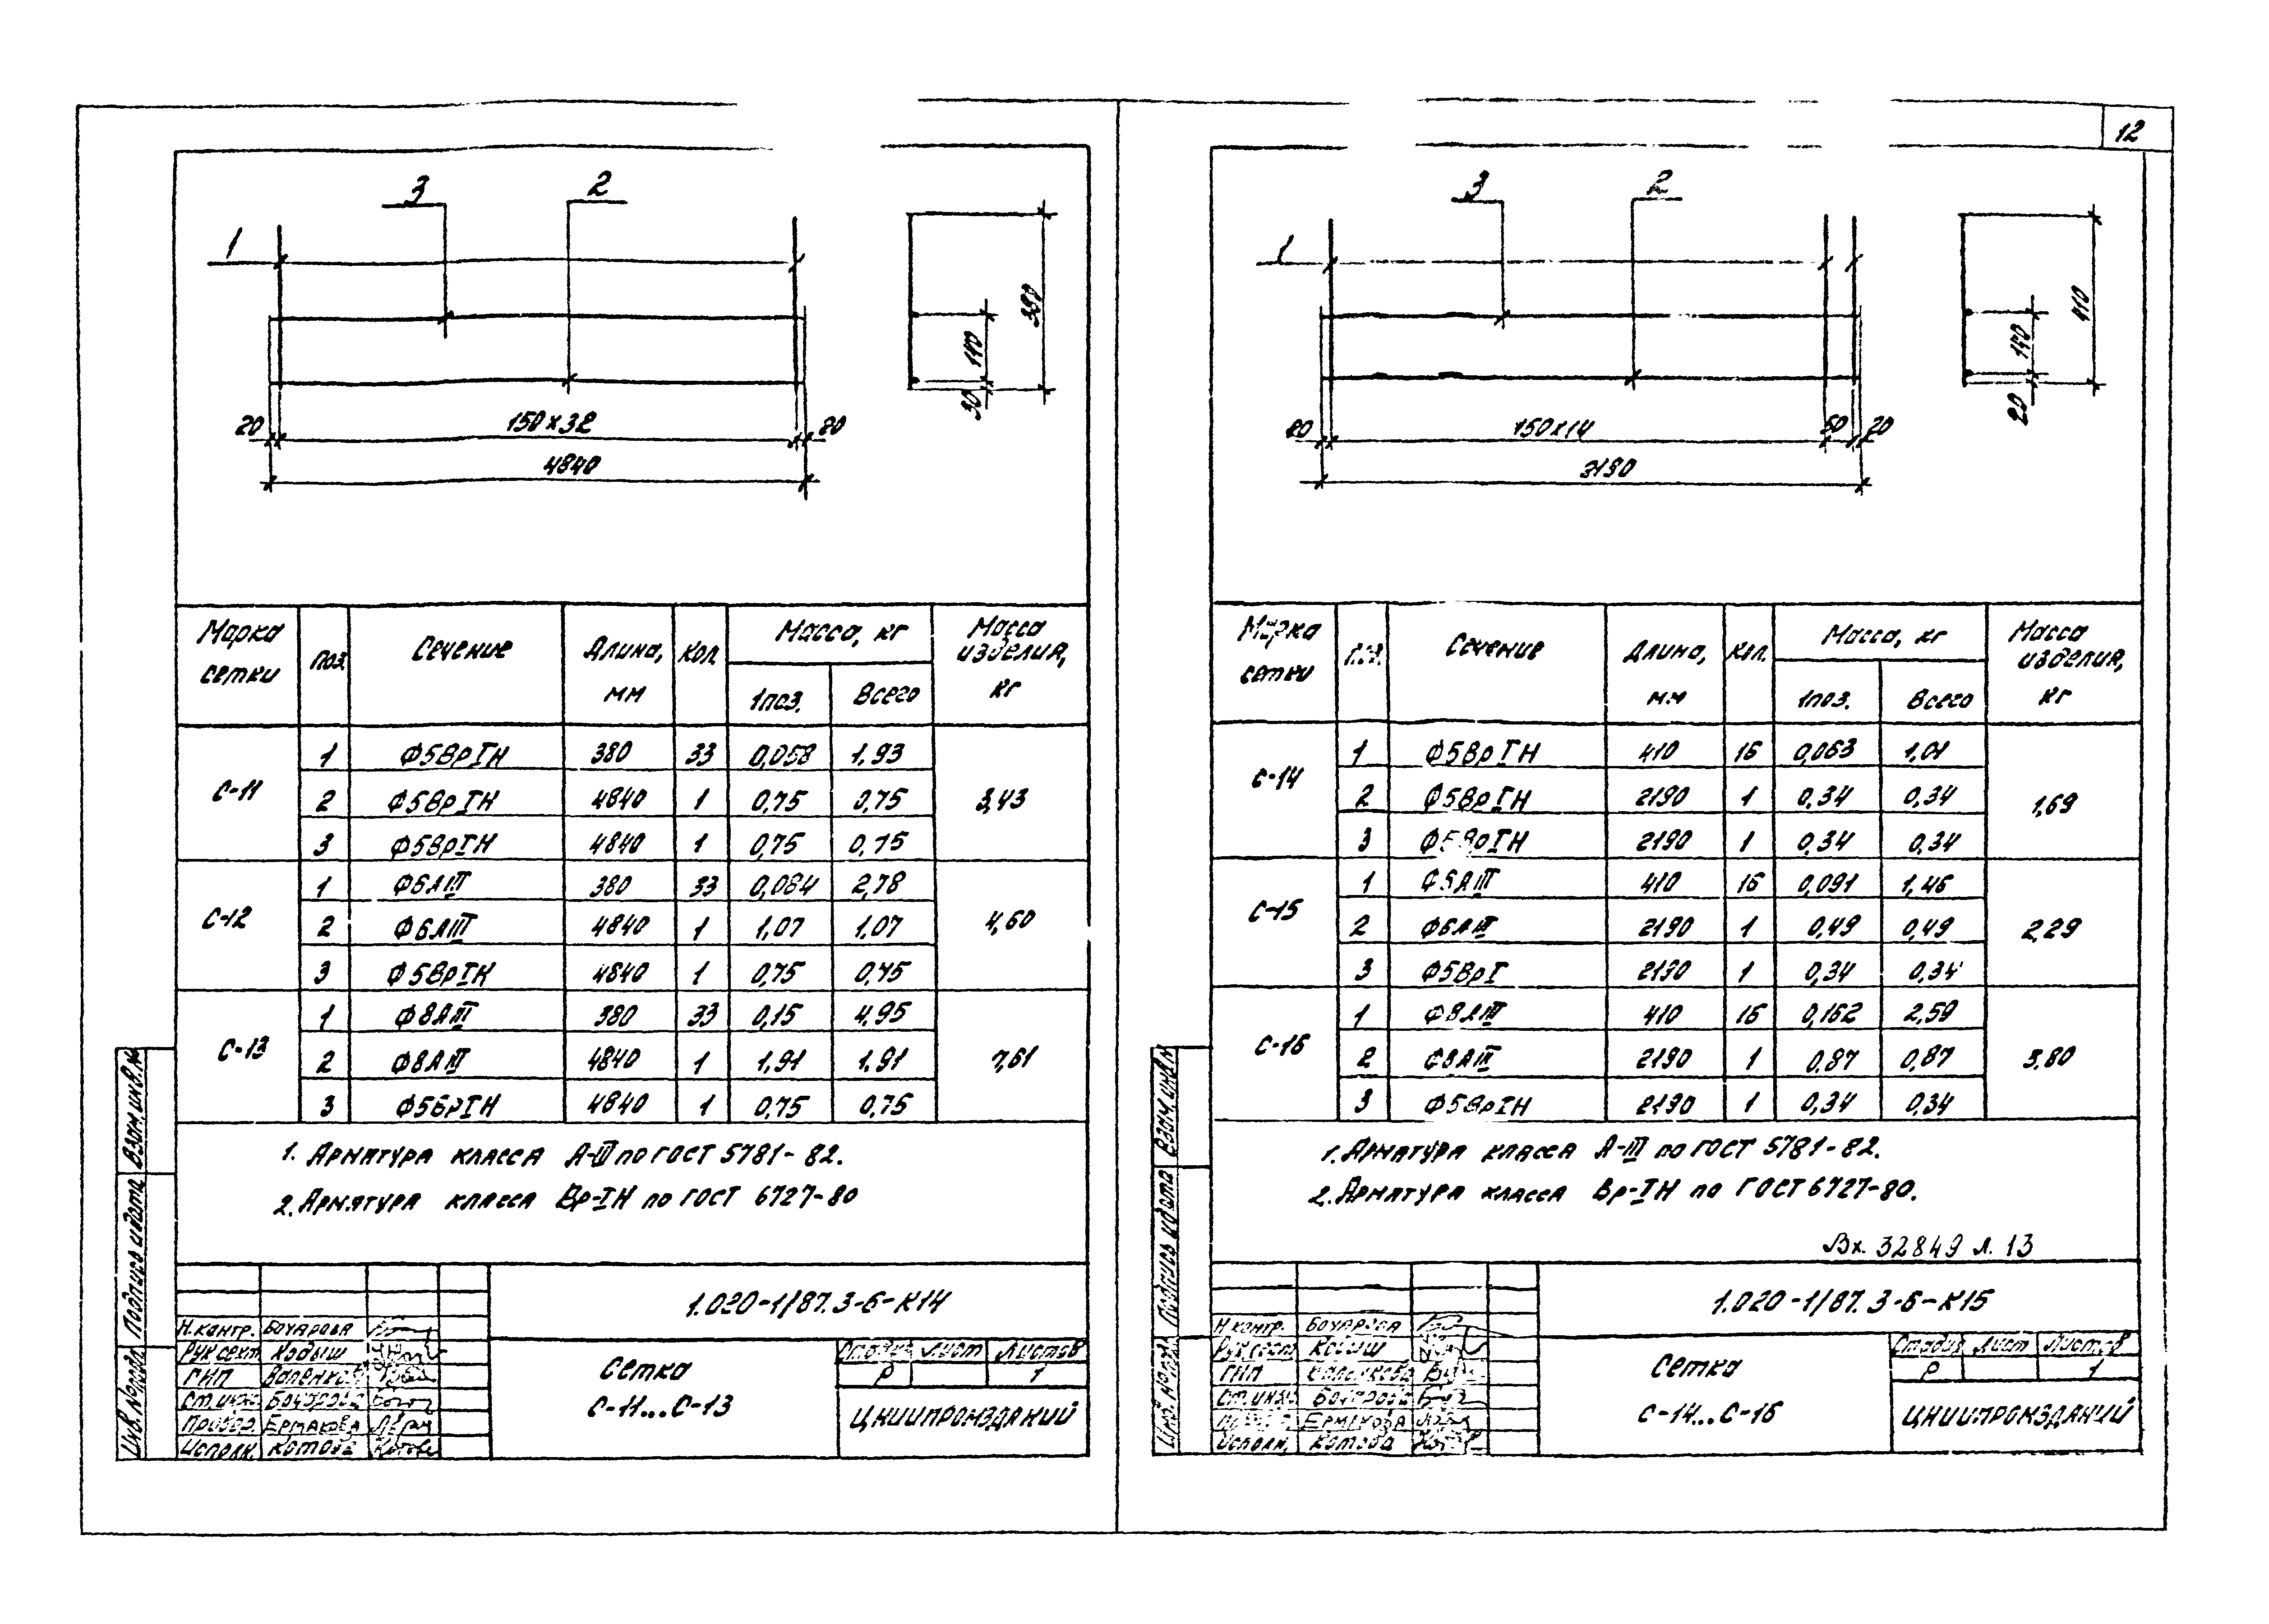 12
3 2
1
380
140
30
20 150×32 20
4840
Марка сетки Поз. Сечение Длина, мм Кол. Масса, кг Масса изделия, кг
1поз. Всего
С-11 3,43
1 Ф5ВрIН 380 33 0,058 1,93
2 Ф5ВрIН 4840 1 0,75 0,75
3 Ф5ВрIН 4840 1 0,75 0,75
С-12 4,60
1 Ф6АIII 380 33 0,084 2,78
2 Ф6АIII 4840 1 1,07 1,07
3 Ф5ВрIН 4840 1 0,75 0,75
С-13 7,61
1 Ф8АIII 380 33 0,15 4,95
2 Ф8АIII 4840 1 1,91 1,91
3 Ф5ВрIН 4840 1 0,75 0,75
1. Арматура класса А-III по ГОСТ 5781-82.
2. Арматура класса Вр-IН по ГОСТ 6727-80
1.020-1/87.3-6-К14
Н.контр. Бочарова
Рук.сект Кадыш
ГИП
Ст.инж. Бочарова
Провер. Ермакова
Исполн. Котова
Сетка
С-11...С-13
Стадия Лист Листов
Р 1
ЦНИИПРОМЗДАНИЙ
Инв.№подл. Подпись и дата Взам.инв.№
3 2
1
410
140
20
20 150×14 50 20
2190
Марка сетки Поз. Сечение Длина, мм Кол. Масса, кг Масса изделия, кг
1поз. Всего
С-14 1,69
1 Ф5ВрIН 410 16 0,063 1,01
2 Ф5ВрIН 2190 1 0,34 0,34
3 Ф5ВрIН 2190 1 0,34 0,34
С-15 2,29
1 Ф6АIII 410 16 0,091 1,46
2 Ф6АIII 2190 1 0,49 0,49
3 Ф5ВрI 2190 1 0,34 0,34
С-16 3,80
1 Ф8АIII 410 16 0,162 2,59
2 Ф8АIII 2190 1 0,87 0,87
3 Ф5ВрIН 2190 1 0,34 0,34
1. Арматура класса А-III по ГОСТ 5781-82.
2. Арматура класса Вр-IН по ГОСТ 6727-80.
Вх. 32849 л. 13
1.020-1/87.3-6-К15
Н.контр. Бочарова
Рук.сект Кадыш
ГИП
Ст.инж. Бочарова
Ермакова
Исполн. Котова
Сетка
С-14...С-16
Стадия Лист Листов
Р 1
ЦНИИПРОМЗДАНИЙ
Инв.№подл. Подпись и дата Взам.инв.№